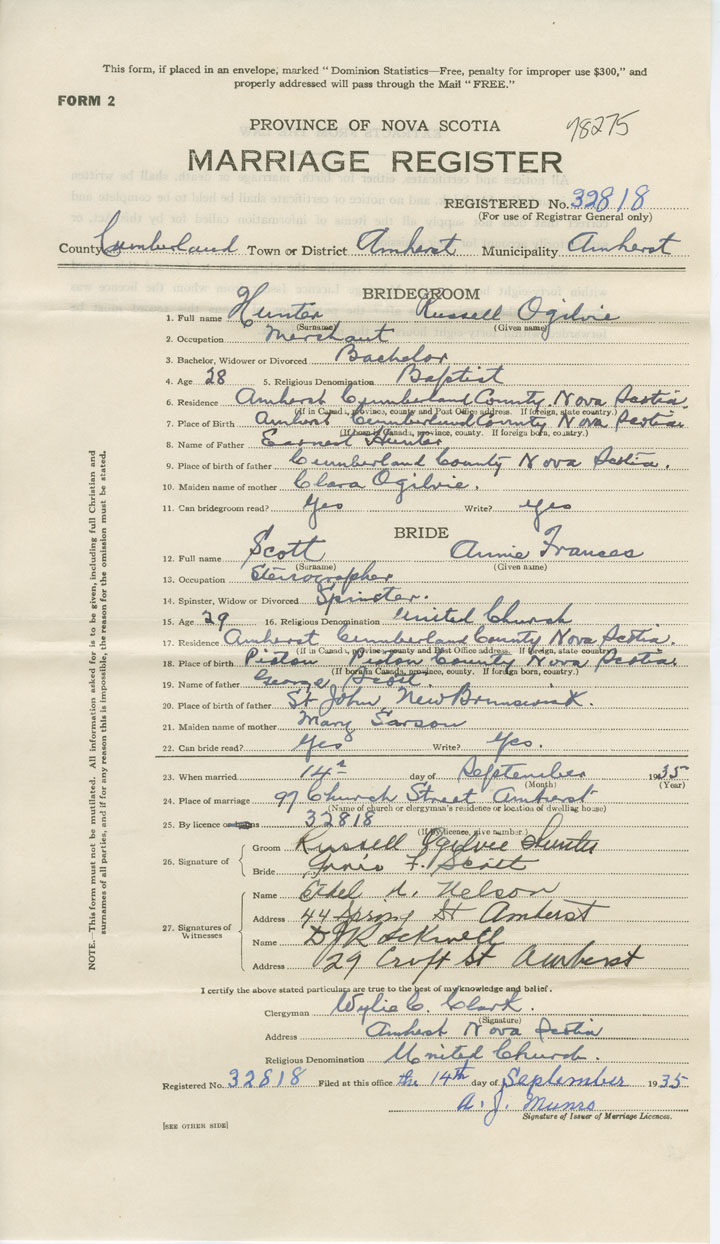 This form, if placed in an envelope, marked "Dominion Statistics—Free, penalty for improper use $300," and
properly addressed will pass through the Mail "FREE."
FORM 2
PROVINCE OF NOVA SCOTIA
78275
MARRIAGE REGISTER
REGISTERED No. 32818
(For use of Registrar General only)
County Cumberland Town or District Amherst Municipality Amherst
BRIDEGROOM
1. Full name Hunter Russell Ogilvie
(Surname) (Given name)
2. Occupation Merchant
3. Bachelor, Widower or Divorced Bachelor
4. Age 28 5. Religious Denomination Baptist
6. Residence Amherst Cumberland County Nova Scotia
(If in Canada, province, county and Post Office address. If foreign, state country.)
7. Place of Birth Amherst Cumberland County Nova Scotia
(If born in Canada, province, county. If foreign born, country.)
8. Name of Father Earnest Hunter
9. Place of birth of father Cumberland County Nova Scotia.
10. Maiden name of mother Clara Ogilvie.
11. Can bridegroom read? Yes Write? Yes
BRIDE
12. Full name Scott Annie Frances
(Surname) (Given name)
13. Occupation Stenographer
14. Spinster, Widow or Divorced Spinster.
15. Age 29 16. Religious Denomination United Church
17. Residence Amherst Cumberland County Nova Scotia.
(If in Canada, Province, county and Post Office address. If foreign, state country.)
18. Place of birth Pictou Pictou County Nova Scotia
(If born in Canada, province, county. If foreign born, country.)
19. Name of father George Scott
20. Place of birth of father St John New Brunswick.
21. Maiden name of mother Mary Sarson
22. Can bride read? Yes Write? Yes.
23. When married 14th day of September 1935
(Month) (Year)
24. Place of marriage 97 Church Street Amherst
(Name of church or clergyman's residence or location of dwelling house)
25. By licence or banns 32818
(If by licence, give number.)
26. Signature of
Groom Russell Ogilvie Hunter
Bride Annie F. Scott
27. Signatures of Witnesses
Name Ethel A. Nelson
Address 44 Spring St Amherst
Name Rockwell
Address 29 Croft St Amherst
I certify the above stated particulars are true to the best of my knowledge and belief.
Clergyman Wylie C. Clark.
(Signature)
Address Amherst Nova Scotia
Religious Denomination United Church.
Registered No. 32818 Filed at this office the 14th day of September 1935
A. J. Munro
Signature of Issuer of Marriage Licences.
[SEE OTHER SIDE]
NOTE.—This form must not be mutilated. All information asked for is to be given, including full Christian and
surnames of all parties, and if for any reason this is impossible, the reason for the omission must be stated.